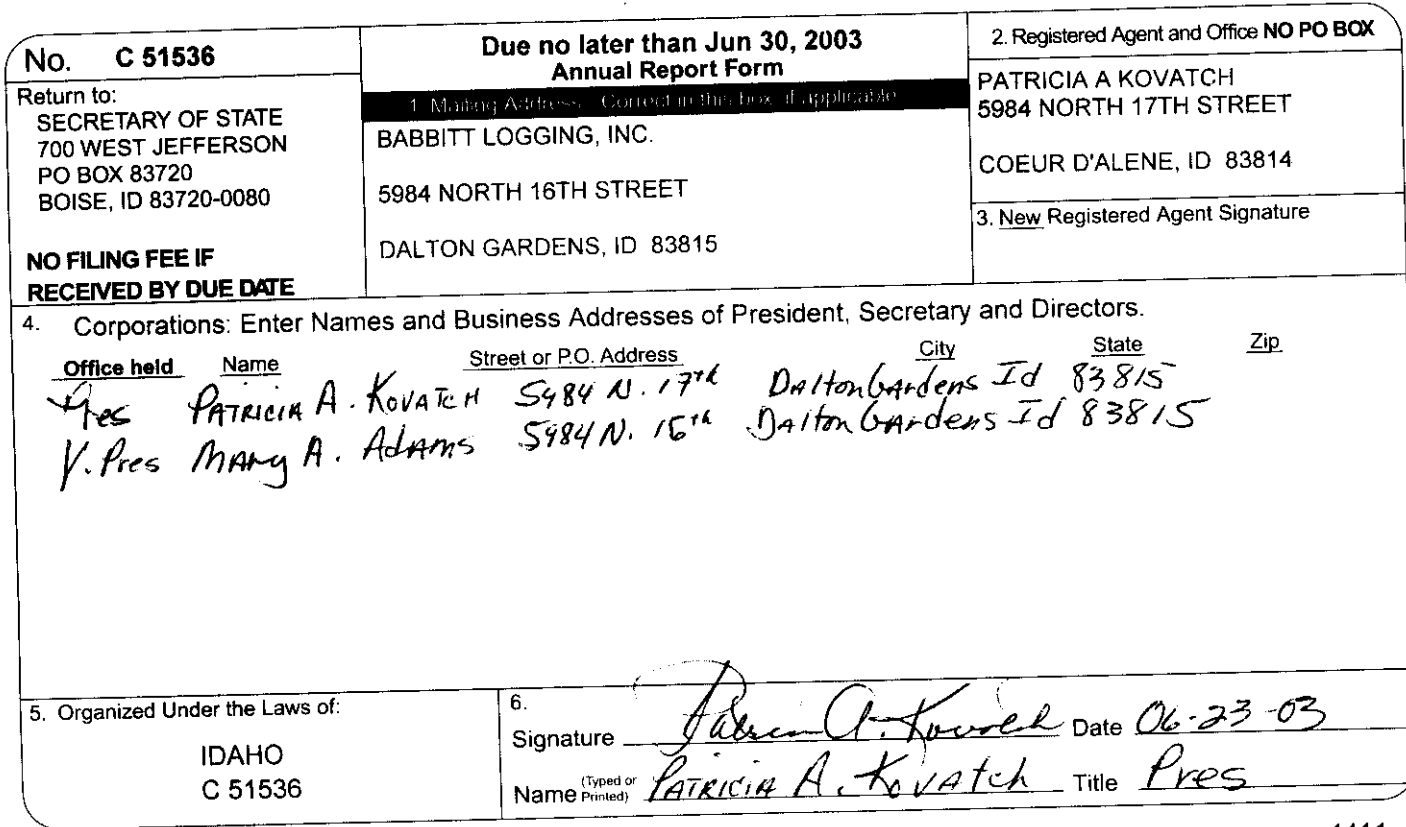 No. C 51536
Return to:
SECRETARY OF STATE
700 WEST JEFFERSON
PO BOX 83720
BOISE, ID 83720-0080
NO FILING FEE IF
RECEIVED BY DUE DATE
Due no later than Jun 30, 2003
Annual Report Form
1. Mailing Address: Correct in this box, if applicable
BABBITT LOGGING, INC.
5984 NORTH 16TH STREET
DALTON GARDENS, ID 83815
2. Registered Agent and Office NO PO BOX
PATRICIA A KOVATCH
5984 NORTH 17TH STREET
COEUR D'ALENE, ID 83814
3. New Registered Agent Signature
4. Corporations: Enter Names and Business Addresses of President, Secretary and Directors.
Office held Name Street or P.O. Address City State Zip
Pres PATRICIA A. KOVATCH 5984 N. 17th Dalton Gardens Id 83815
V. Pres MARY A. ADAMS 5984 N. 16th Dalton Gardens Id 83815
5. Organized Under the Laws of:
IDAHO
C 51536
6.
Signature Patricia A. Kovatch Date 06-23-03
Name (Typed or Printed) PATRICIA A. KOVATCH Title Pres